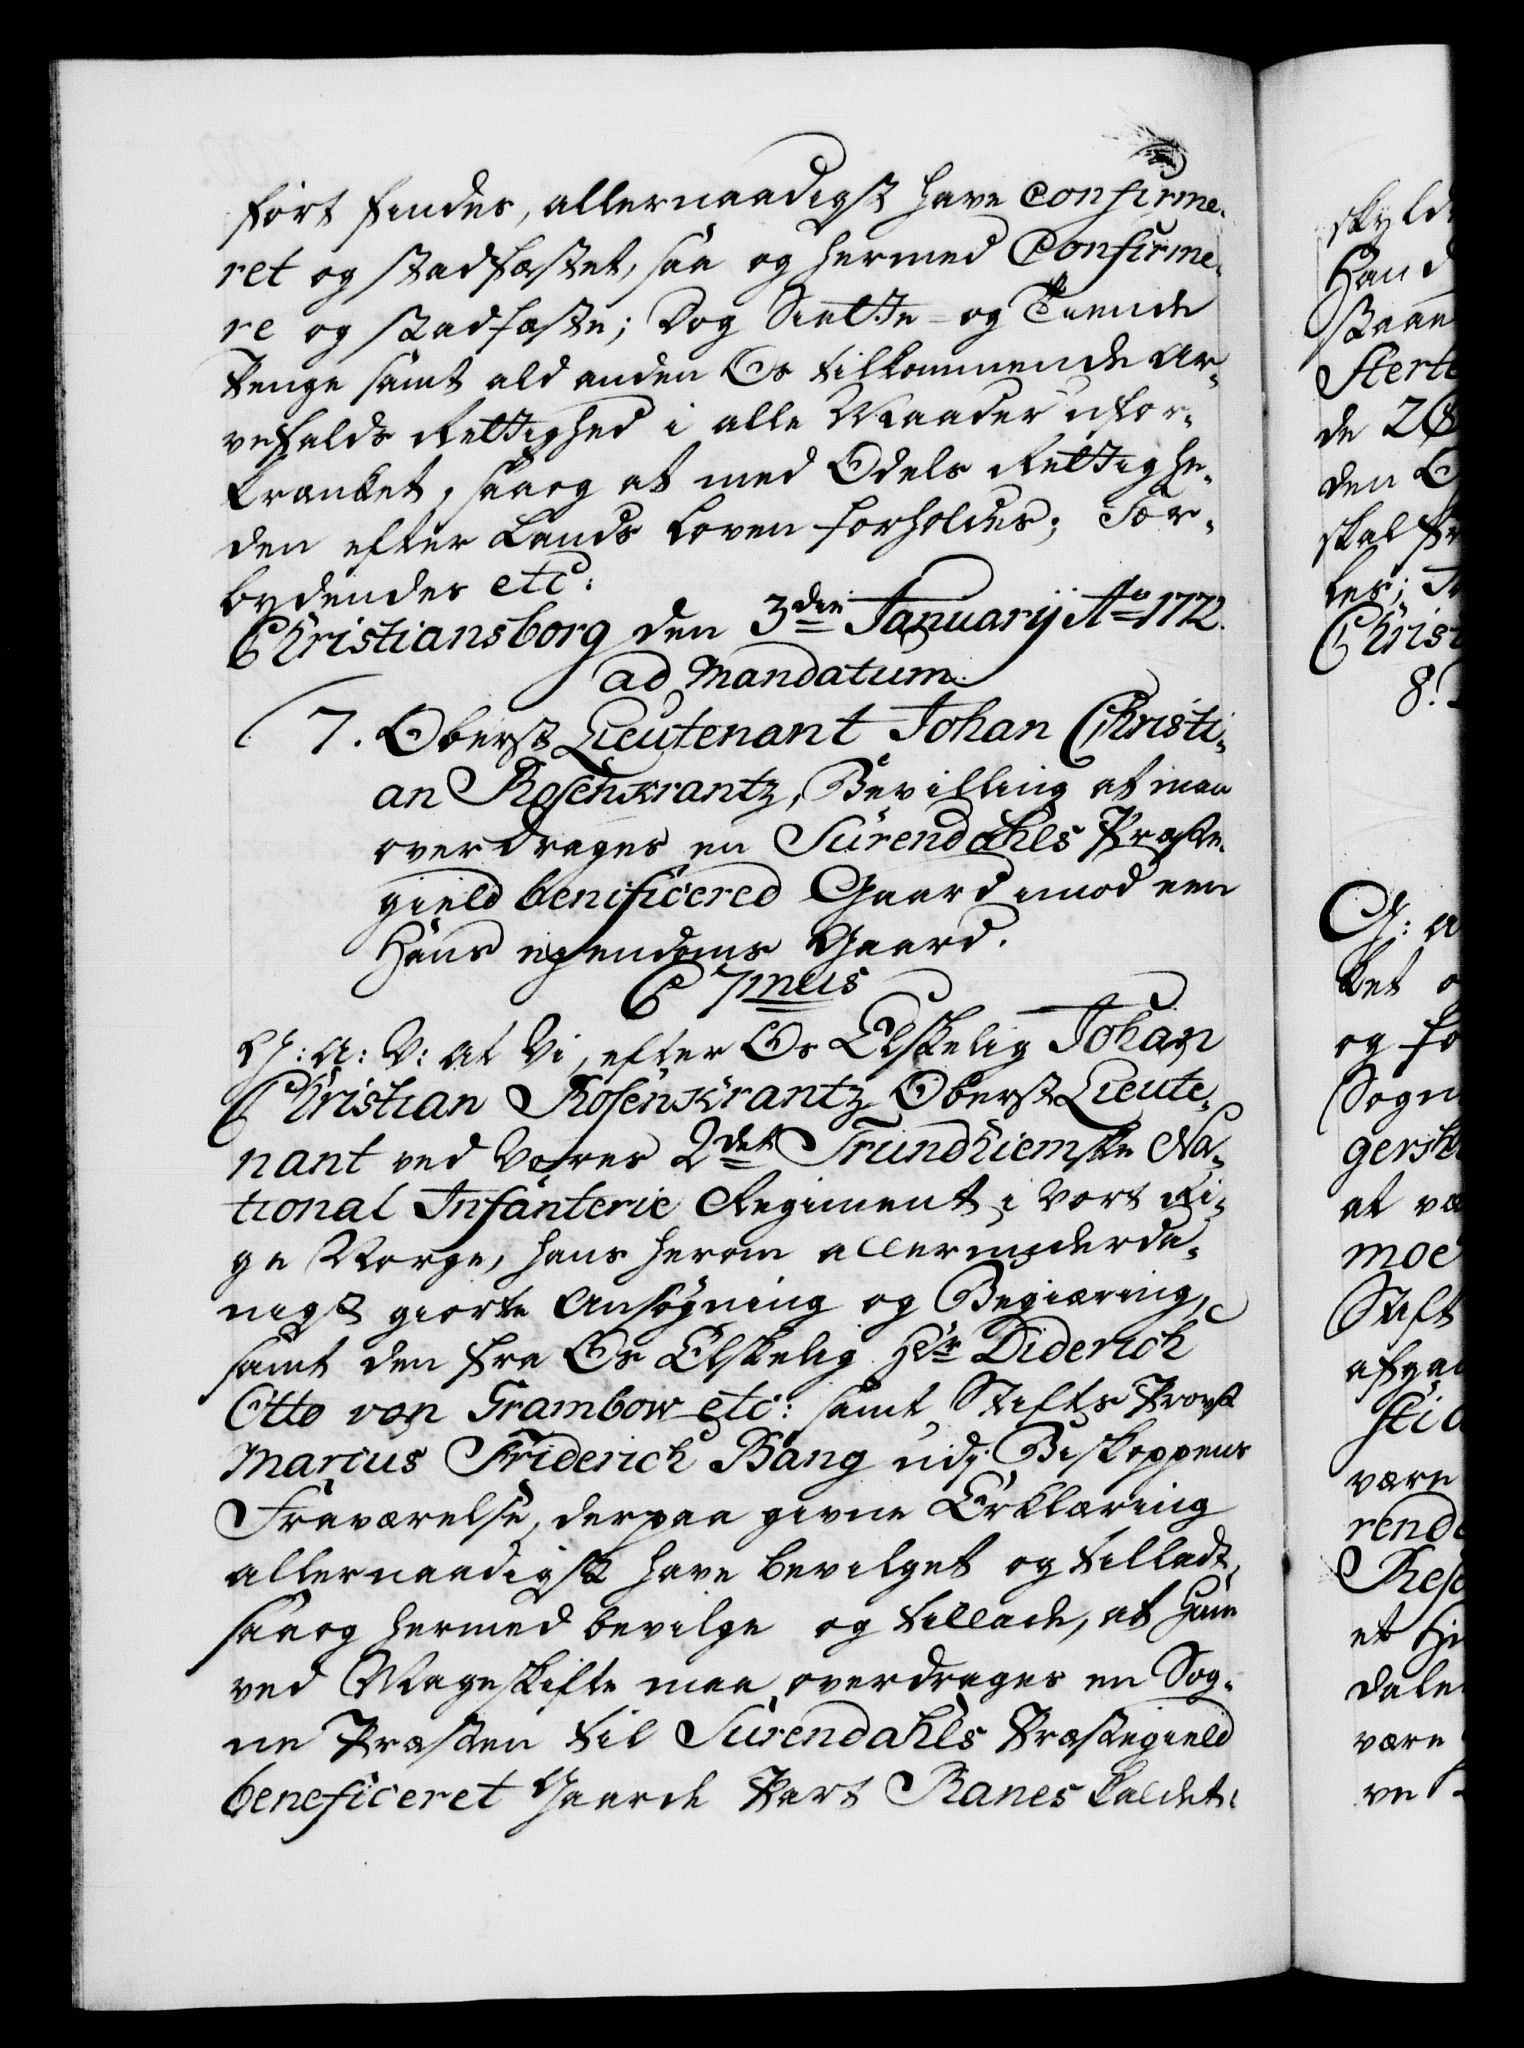 ført findes, allernaadigst have Confirme-
ret og stadfæstet, saa og hermed Confirme-
re og stadfæste; Dog Siette- og Tiende
Penge samt ald anden Os tilkommende Ar-
vefalds Rettighed i alle Maader ufor-
krænket, saa og at med Odels Rettighe-
den efter Lands Loven forholdes; For-
bydendes etc:
Christiansborg den 3die Januarij Ao 1772.
ad Mandatum.
7. Oberst Lieutenant Johan Christi-
an Rosenkrantz, Bevilling at maa
overdrages en Surendahls Præste-
gield benificered Gaard imod een
Hans ejendoms Gaard.
C 7mus
G: A: V: at Vi, efter Os Elskelig Johan
Christian Rosenkrantz Oberst Lieute-
nant ved Vores 2det Trundhiemske Na-
tional Infanterie Regiment i Vort Ri-
ge Norge, hans herom allerunderda-
nigst giorte Ansøgning og Begiæring,
samt den fra Os Elskelig Hr Diderich
Otto von Grambow etc: samt Stifts Provst
Marcus Friderich Bang udj Biskoppens
Fraværelse, derpaa givne Erklæring
allernaadigst have bevilget og tilladt,
saa og hermed bevilge og tillade, at Ham
ved Mageskifte maa overdrages en Sog-
ne Præsten til Surendahls Præstegield
beneficeret Gaard Part Ranes kaldet:
skyld
Hand
Sterte
de 2
den O
skal
Christ
8.
G: A
ket o
og fo
Sogn
gersk
at væ
moe
Stift
afga
være
rend
Rese
et Hi
dale
være
ve